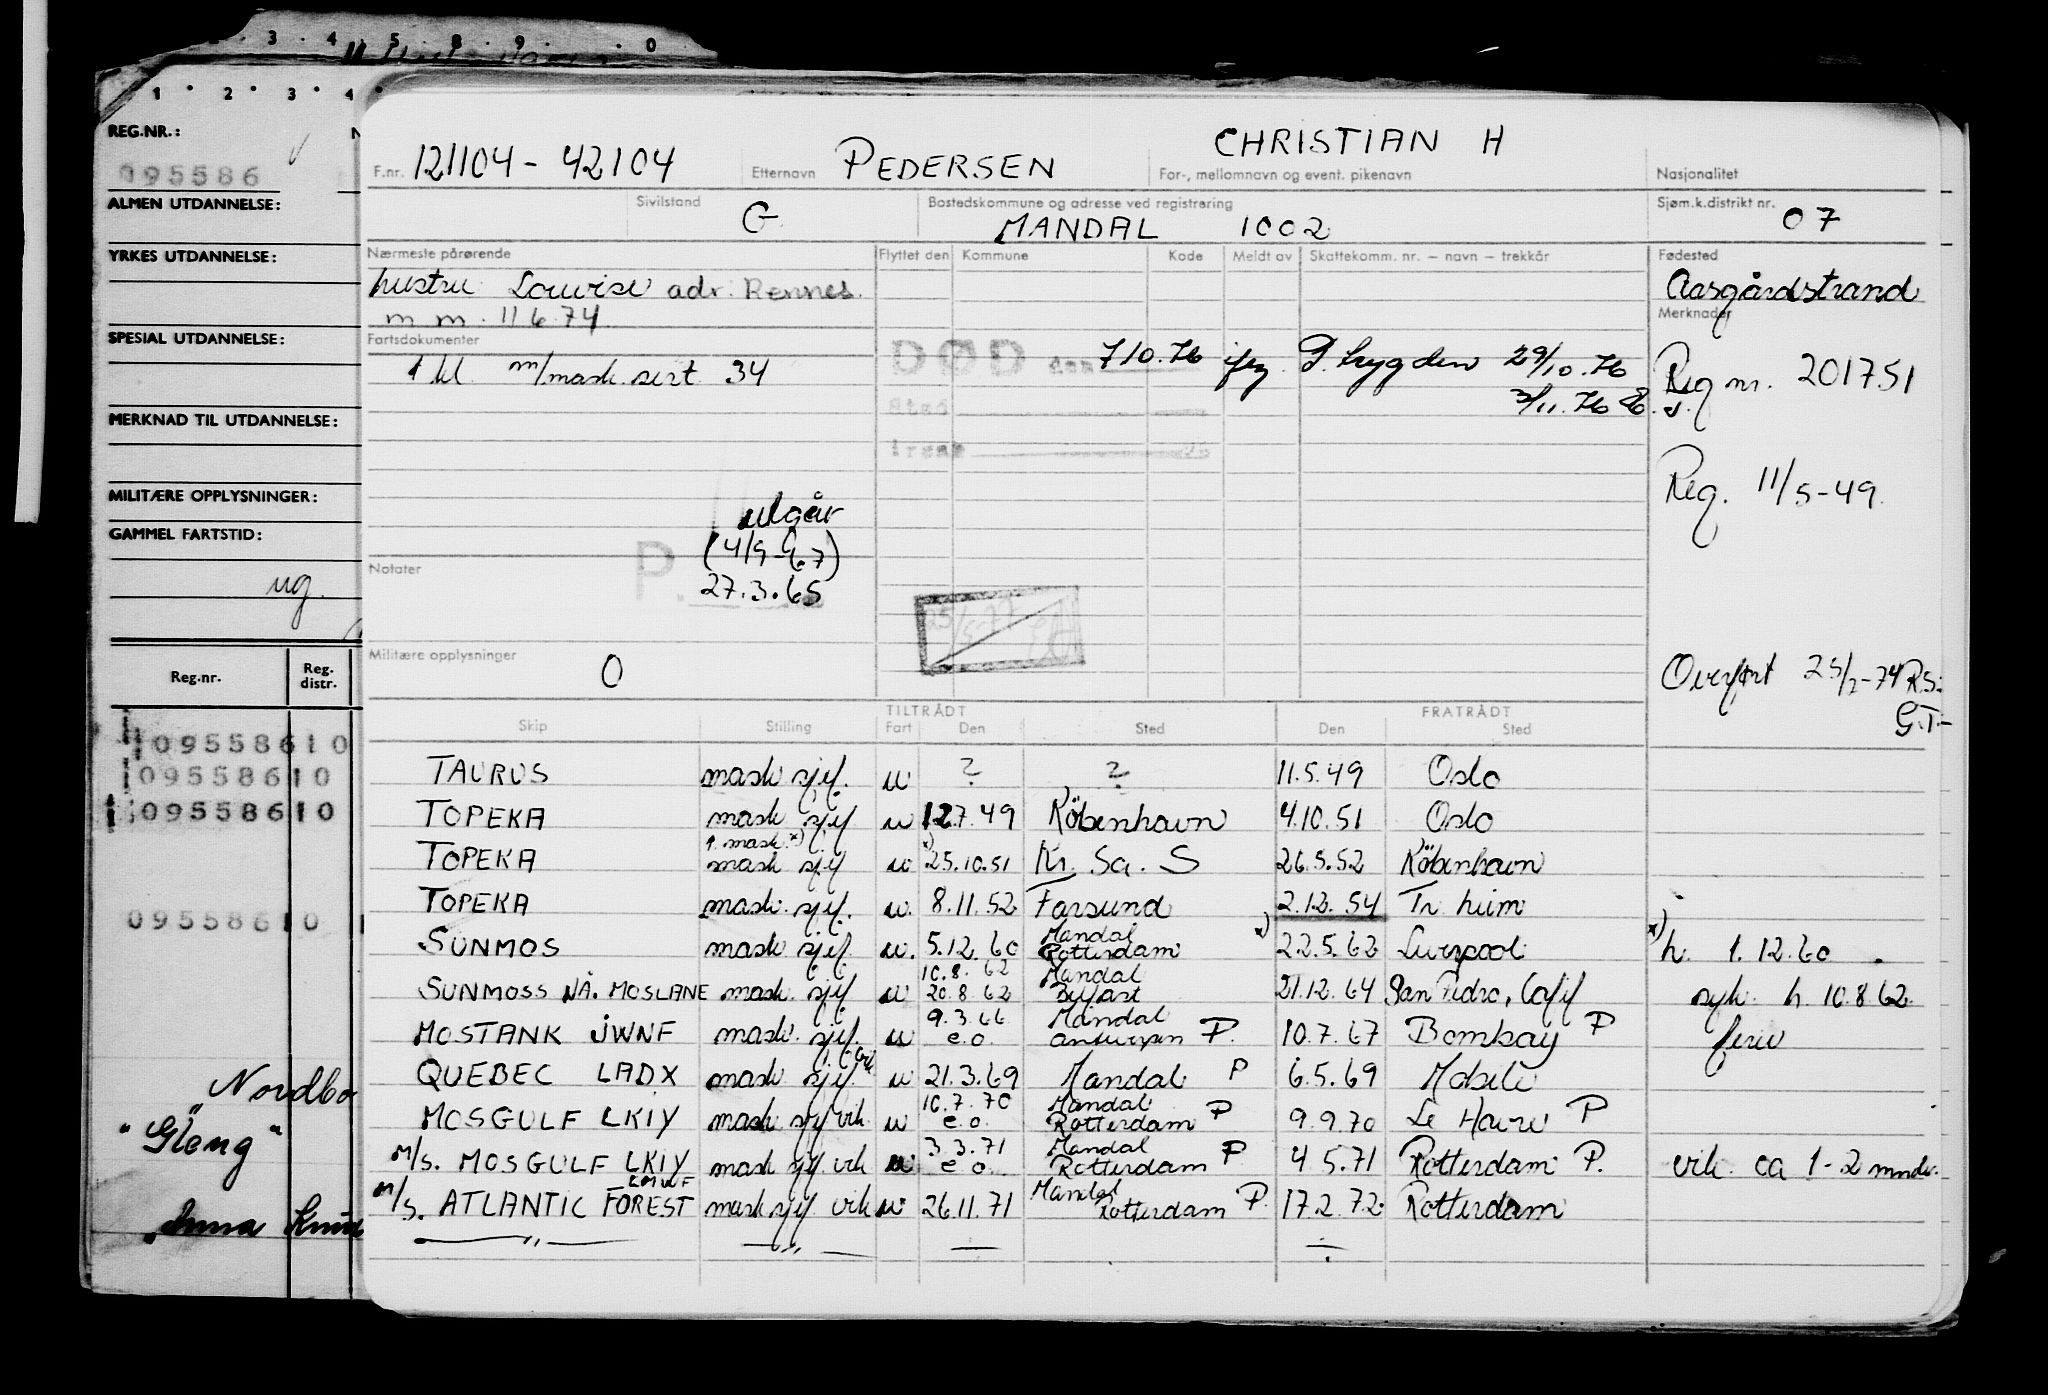 3 · 4 · 5 · 8 · 9 · · 0
1 · 2 · 3 · 4
REG.NR.:
095586
ALMEN UTDANNELSE:
YRKES UTDANNELSE:
SPESIAL UTDANNELSE:
MERKNAD TIL UTDANNELSE:
MILITÆRE OPPLYSNINGER:
GAMMEL FARTSTID:
ug.
Reg.nr. Reg. distr.
09558610
09558610
09558610
09558610
Nordbo
"Gleng"
Anna Knud
CHRISTIAN H
F.nr. 121104-42104 Etternavn PEDERSEN For-, mellomnavn og event. pikenavn Nasjonalitet
Sivilstand G Bostedskommune og adresse ved registrering Sjøm.k.distrikt nr. 07
MANDAL 1002
Nærmeste pårørende Flyttet den Kommune Kode Meldt av Skattekomm. nr. – navn – trekkår Fødested
hustru Louise adr. Rennes. Aasgårdstrand
m m. 11 6.74 Merknader
Fartsdokumenter
DØD den 7/10.76 29/10.76
1 kl m/mask.sert 34 Reg nr. 201751
Sted 3/11.76
Reg. 11/5-49.
utgår
(4/9-67)
Notater P. 27.3.65
25/5-77
Militære opplysninger 0
Overført 25/2-74 R.S:
G.T-
TILTRÅDT FRATRÅDT
Skip Stilling Fart Den Sted Den Sted
TAURUS mask sjef. u ? ? 11.5.49 Oslo
TOPEKA mask sjef u 12.7.49 København 4.10.51 Oslo
1. mask. x)
TOPEKA mask sjef u x) 25.10.51 Kr. Sa. S 26.5.52 København
TOPEKA mask. sjef. u. 8.11.52 Farsund 2.12.54 Tr. heim
Mandal
SUNMOS mask sjef. u. 5.12.60 Rotterdam x) 22.5.62 Liverpool x) h. 1.12.60
10.8.62 Mandal
SUNMOSS NÅ. MOSLANE mask. sjef u 20.8.62 Belfast 21.12.64 San Pedro, Calif syk. h. 10.8.62
9.3.66 Mandal
MOSTANK JWNF mask. sjef. u e.o. Antwerpen P. 10.7.67 Bombay P ferie
QUEBEC LADX mask sjef. vik u 21.3.69 Mandal P 6.5.69 Mobile
10.7.70 Mandal
MOSGULF LKIY mask sjef vik u e.o. Rotterdam P 9.9.70 Le Havre P
3.3.71 Mandal
M/S. MOSGULF LKIY mask sjef vik u e o. Rotterdam P 4 5.71 Rotterdam P. vik. ca 1-2 mndr.
Mandal
M/S. ATLANTIC FOREST mask sjef vik u 26.11.71 Rotterdam P. 17.2.72 Rotterdam